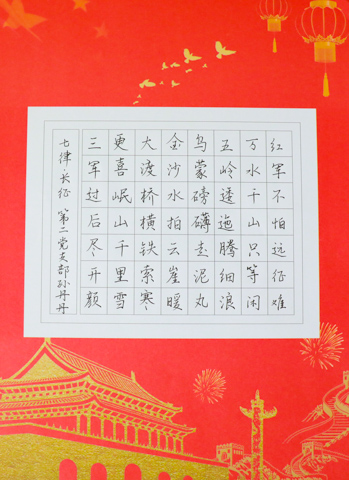 红军不怕远征难
万水千山只等闲
五岭逶迤腾细浪
乌蒙磅礴走泥丸
金沙水拍云崖暖
大渡桥横铁索寒
更喜岷山千里雪
三军过后尽开颜
七律 长征 第二党支部孙丹丹